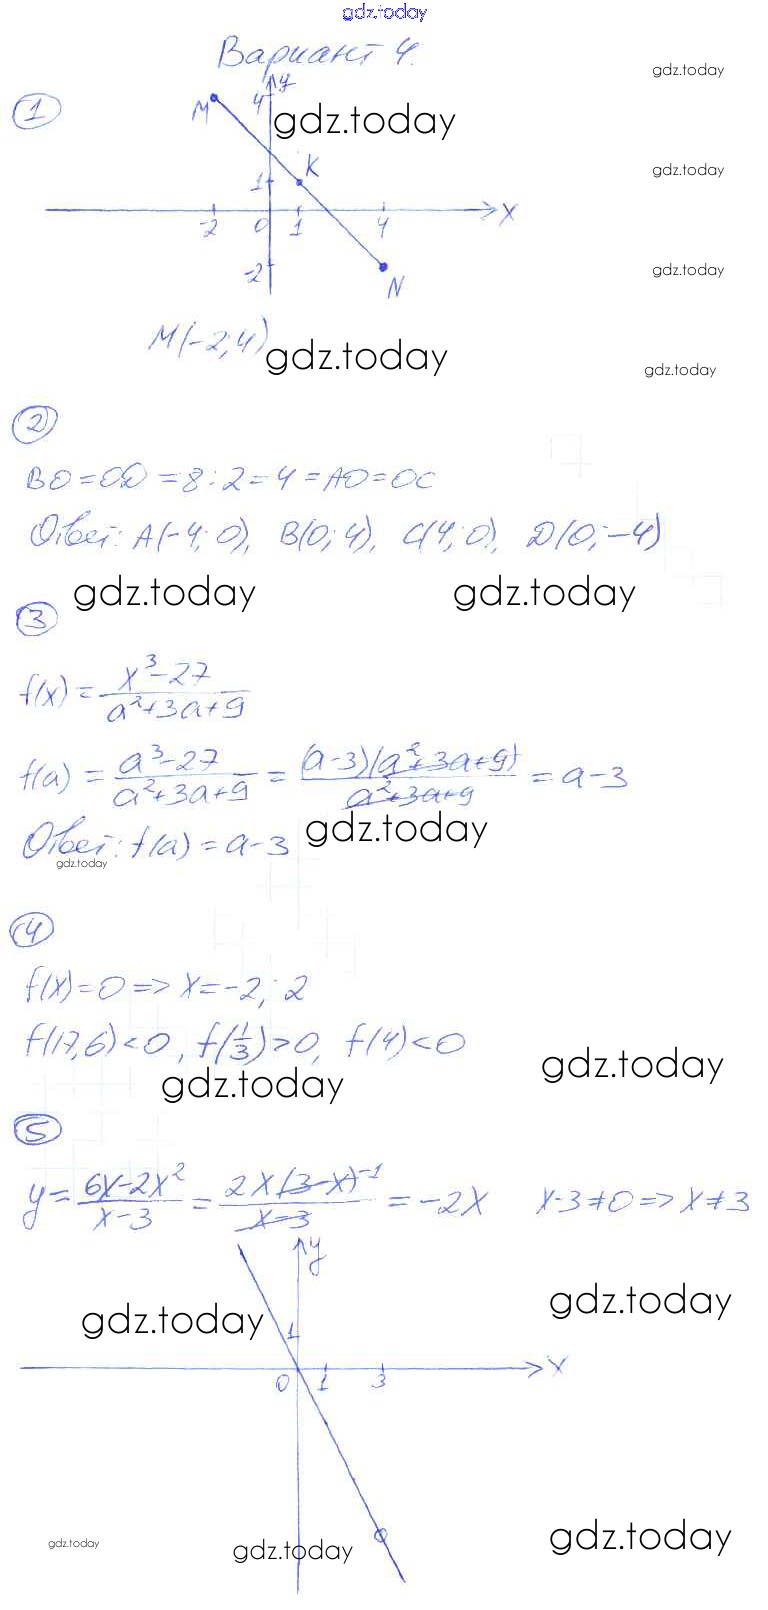 gdz.today
Вариант 4.
gdz.today
1
M 4 y
gdz.today
K
gdz.today
1
-2 0 1 4 x
-2
gdz.today
N
M(-2; 4)
gdz.today
gdz.today
2
BO = OD = 8 : 2 = 4 = AO = OC
Ответ: A(-4; 0), B(0; 4), C(4; 0), D(0; -4)
gdz.today gdz.today
3
f(x) = (x³-27)/(a²+3a+9)
f(a) = (a³-27)/(a²+3a+9) = ((a-3)(a²+3a+9))/(a²+3a+9) = a-3
Ответ: f(a) = a-3
gdz.today
gdz.today
4
f(x) = 0 => x = -2; 2
f(17,6) < 0, f(1/3) > 0, f(4) < 0
gdz.today
gdz.today
5
y = (6x-2x²)/(x-3) = (2x(3-x)⁻¹)/(x-3) = -2x x-3≠0 => x≠3
y
gdz.today
gdz.today
1
0 1 3 x
gdz.today
gdz.today
gdz.today